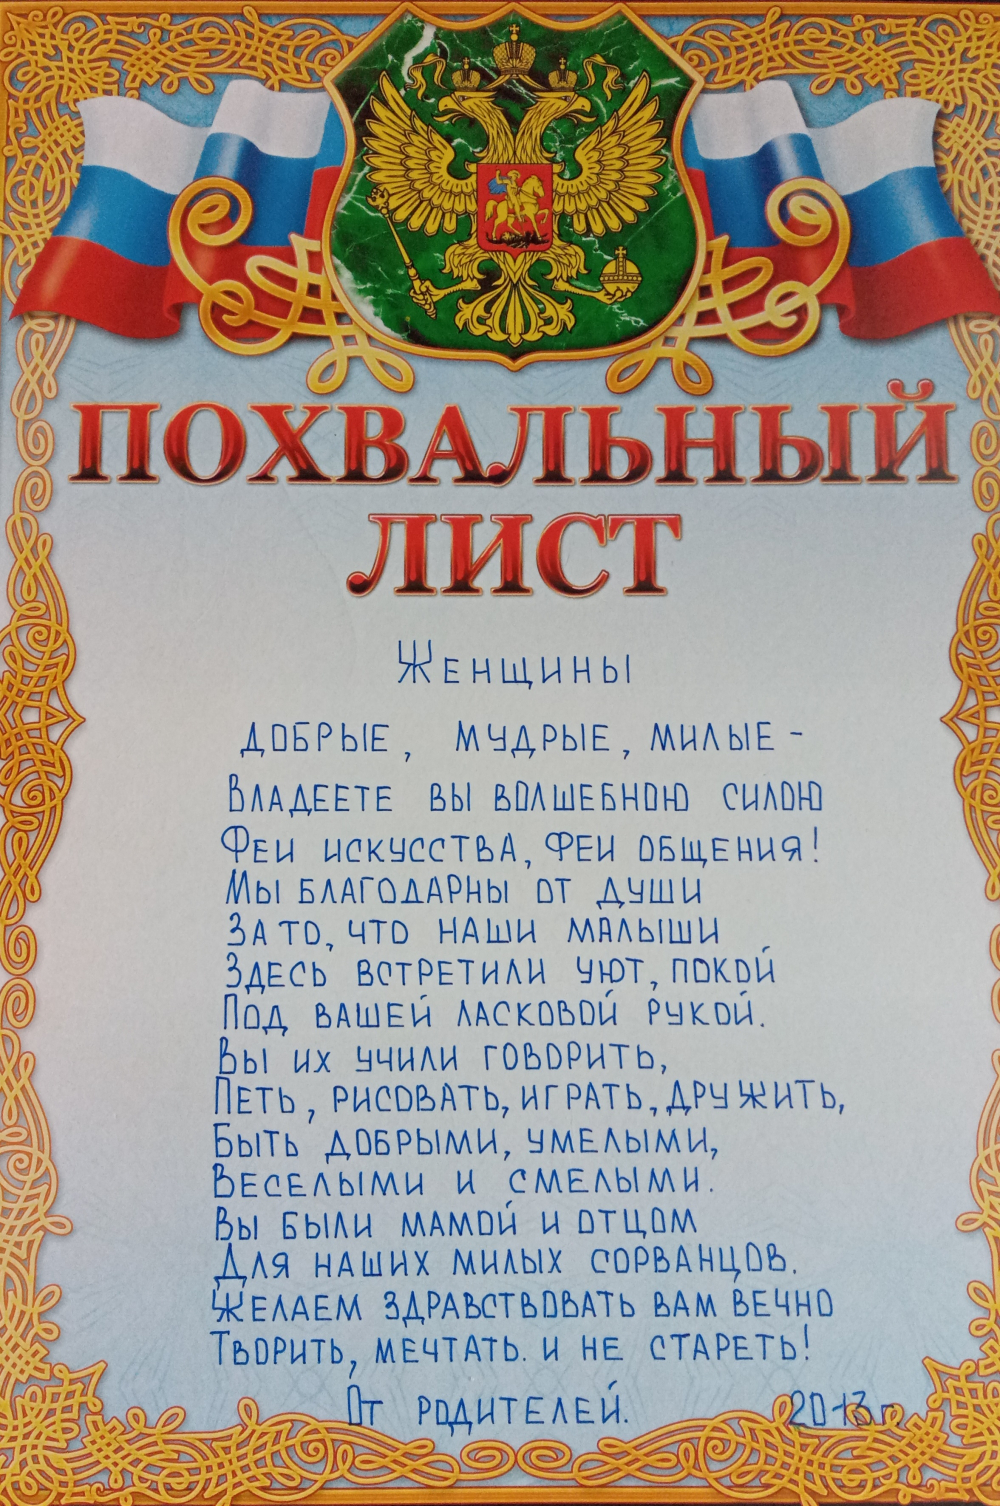 ПОХВАЛЬНЫЙ
ЛИСТ
Женщины
добрые, мудрые, милые -
Владеете вы волшебною силою
Феи искусства, феи общения!
Мы благодарны от души
За то, что наши малыши
Здесь встретили уют, покой
Под вашей ласковой рукой.
Вы их учили говорить,
Петь, рисовать, играть, дружить,
Быть добрыми, умелыми,
Веселыми и смелыми.
Вы были мамой и отцом
Для наших милых сорванцов.
Желаем здравствовать вам вечно
Творить, мечтать. и не стареть!
От родителей. 2013 г.